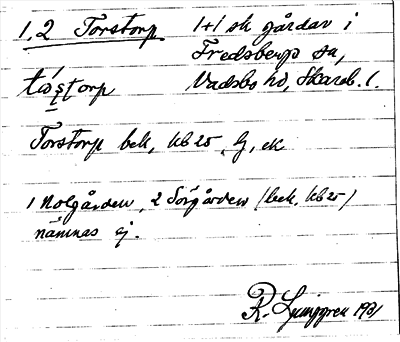 1.2 Torstorp 1+1 sk gårdar i
Fredsbergs sn,
Vadsbo hd, Skarab. l.
Torstorp bek, kb 25, G, ek
1 Nolgården, 2 Sörgården (bek, kb 25)
nämnas ej.
R. Ljunggren 1931